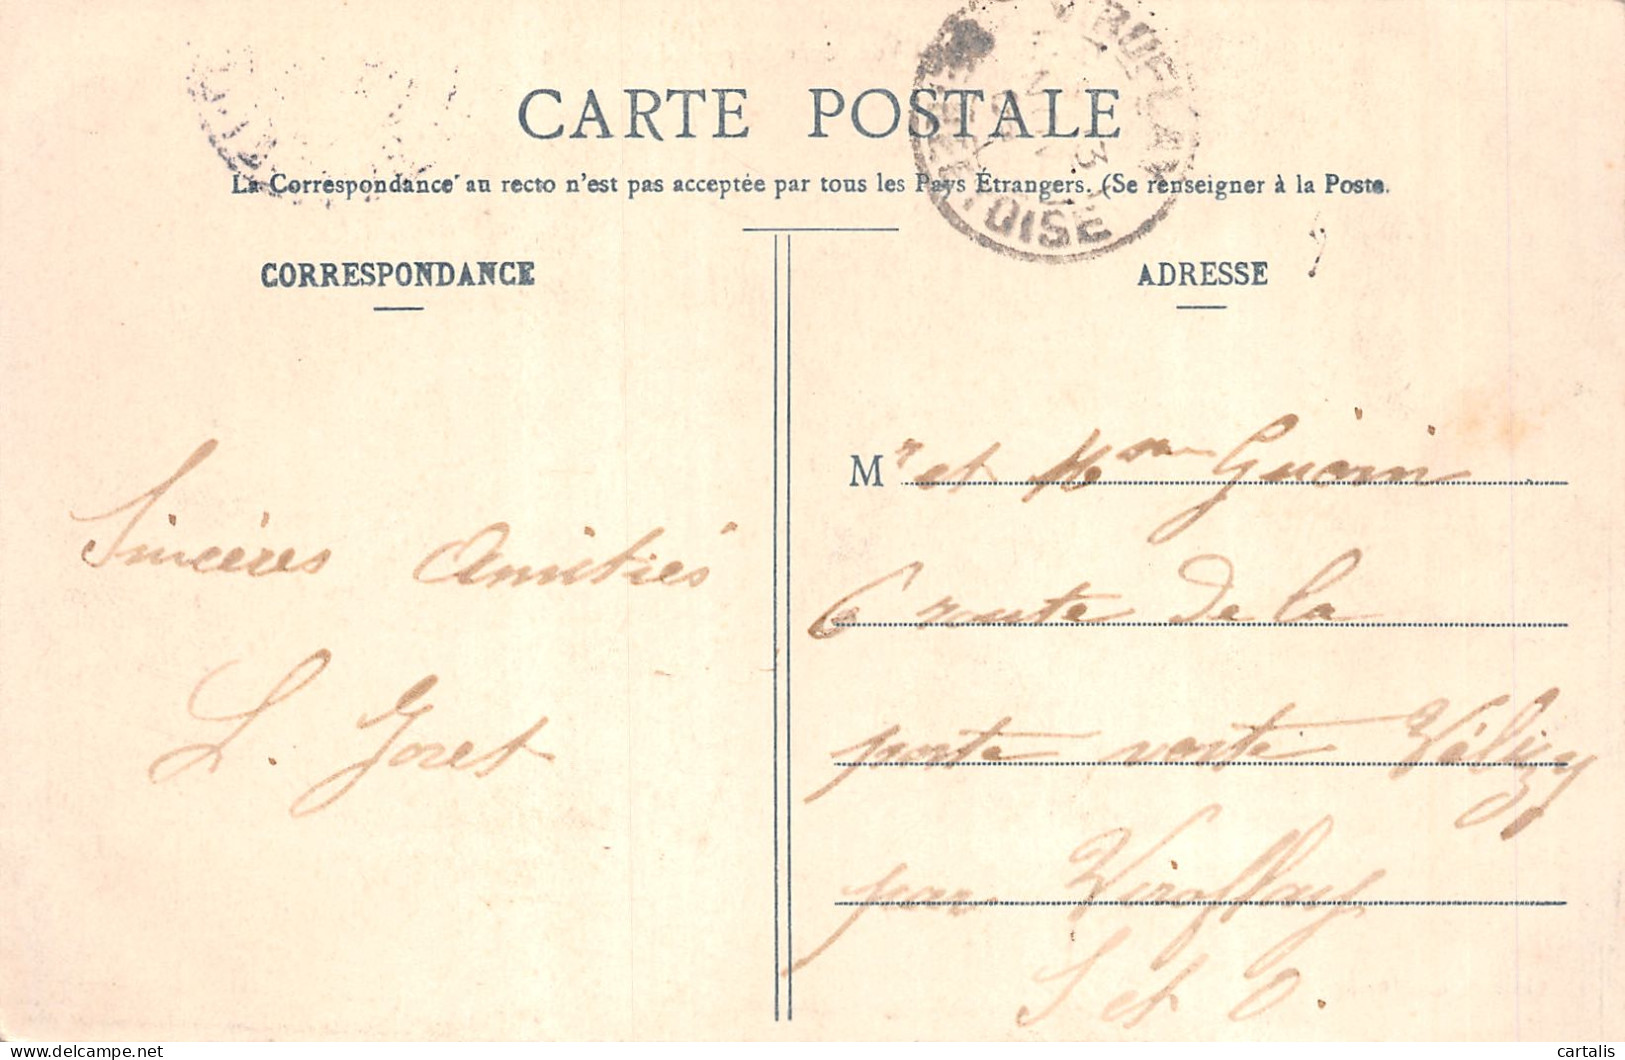 CARTE POSTALE
La Correspondance au recto n'est pas acceptée par tous les Pays Étrangers. (Se renseigner à la Poste.
CORRESPONDANCE
ADRESSE
Sincères Amitiés
L. Joret
Mr et Mme Guérin
6 route de la
porte verte Vélizy
par Viroflay
S et O.
OISE
delcampe.net
cartalis